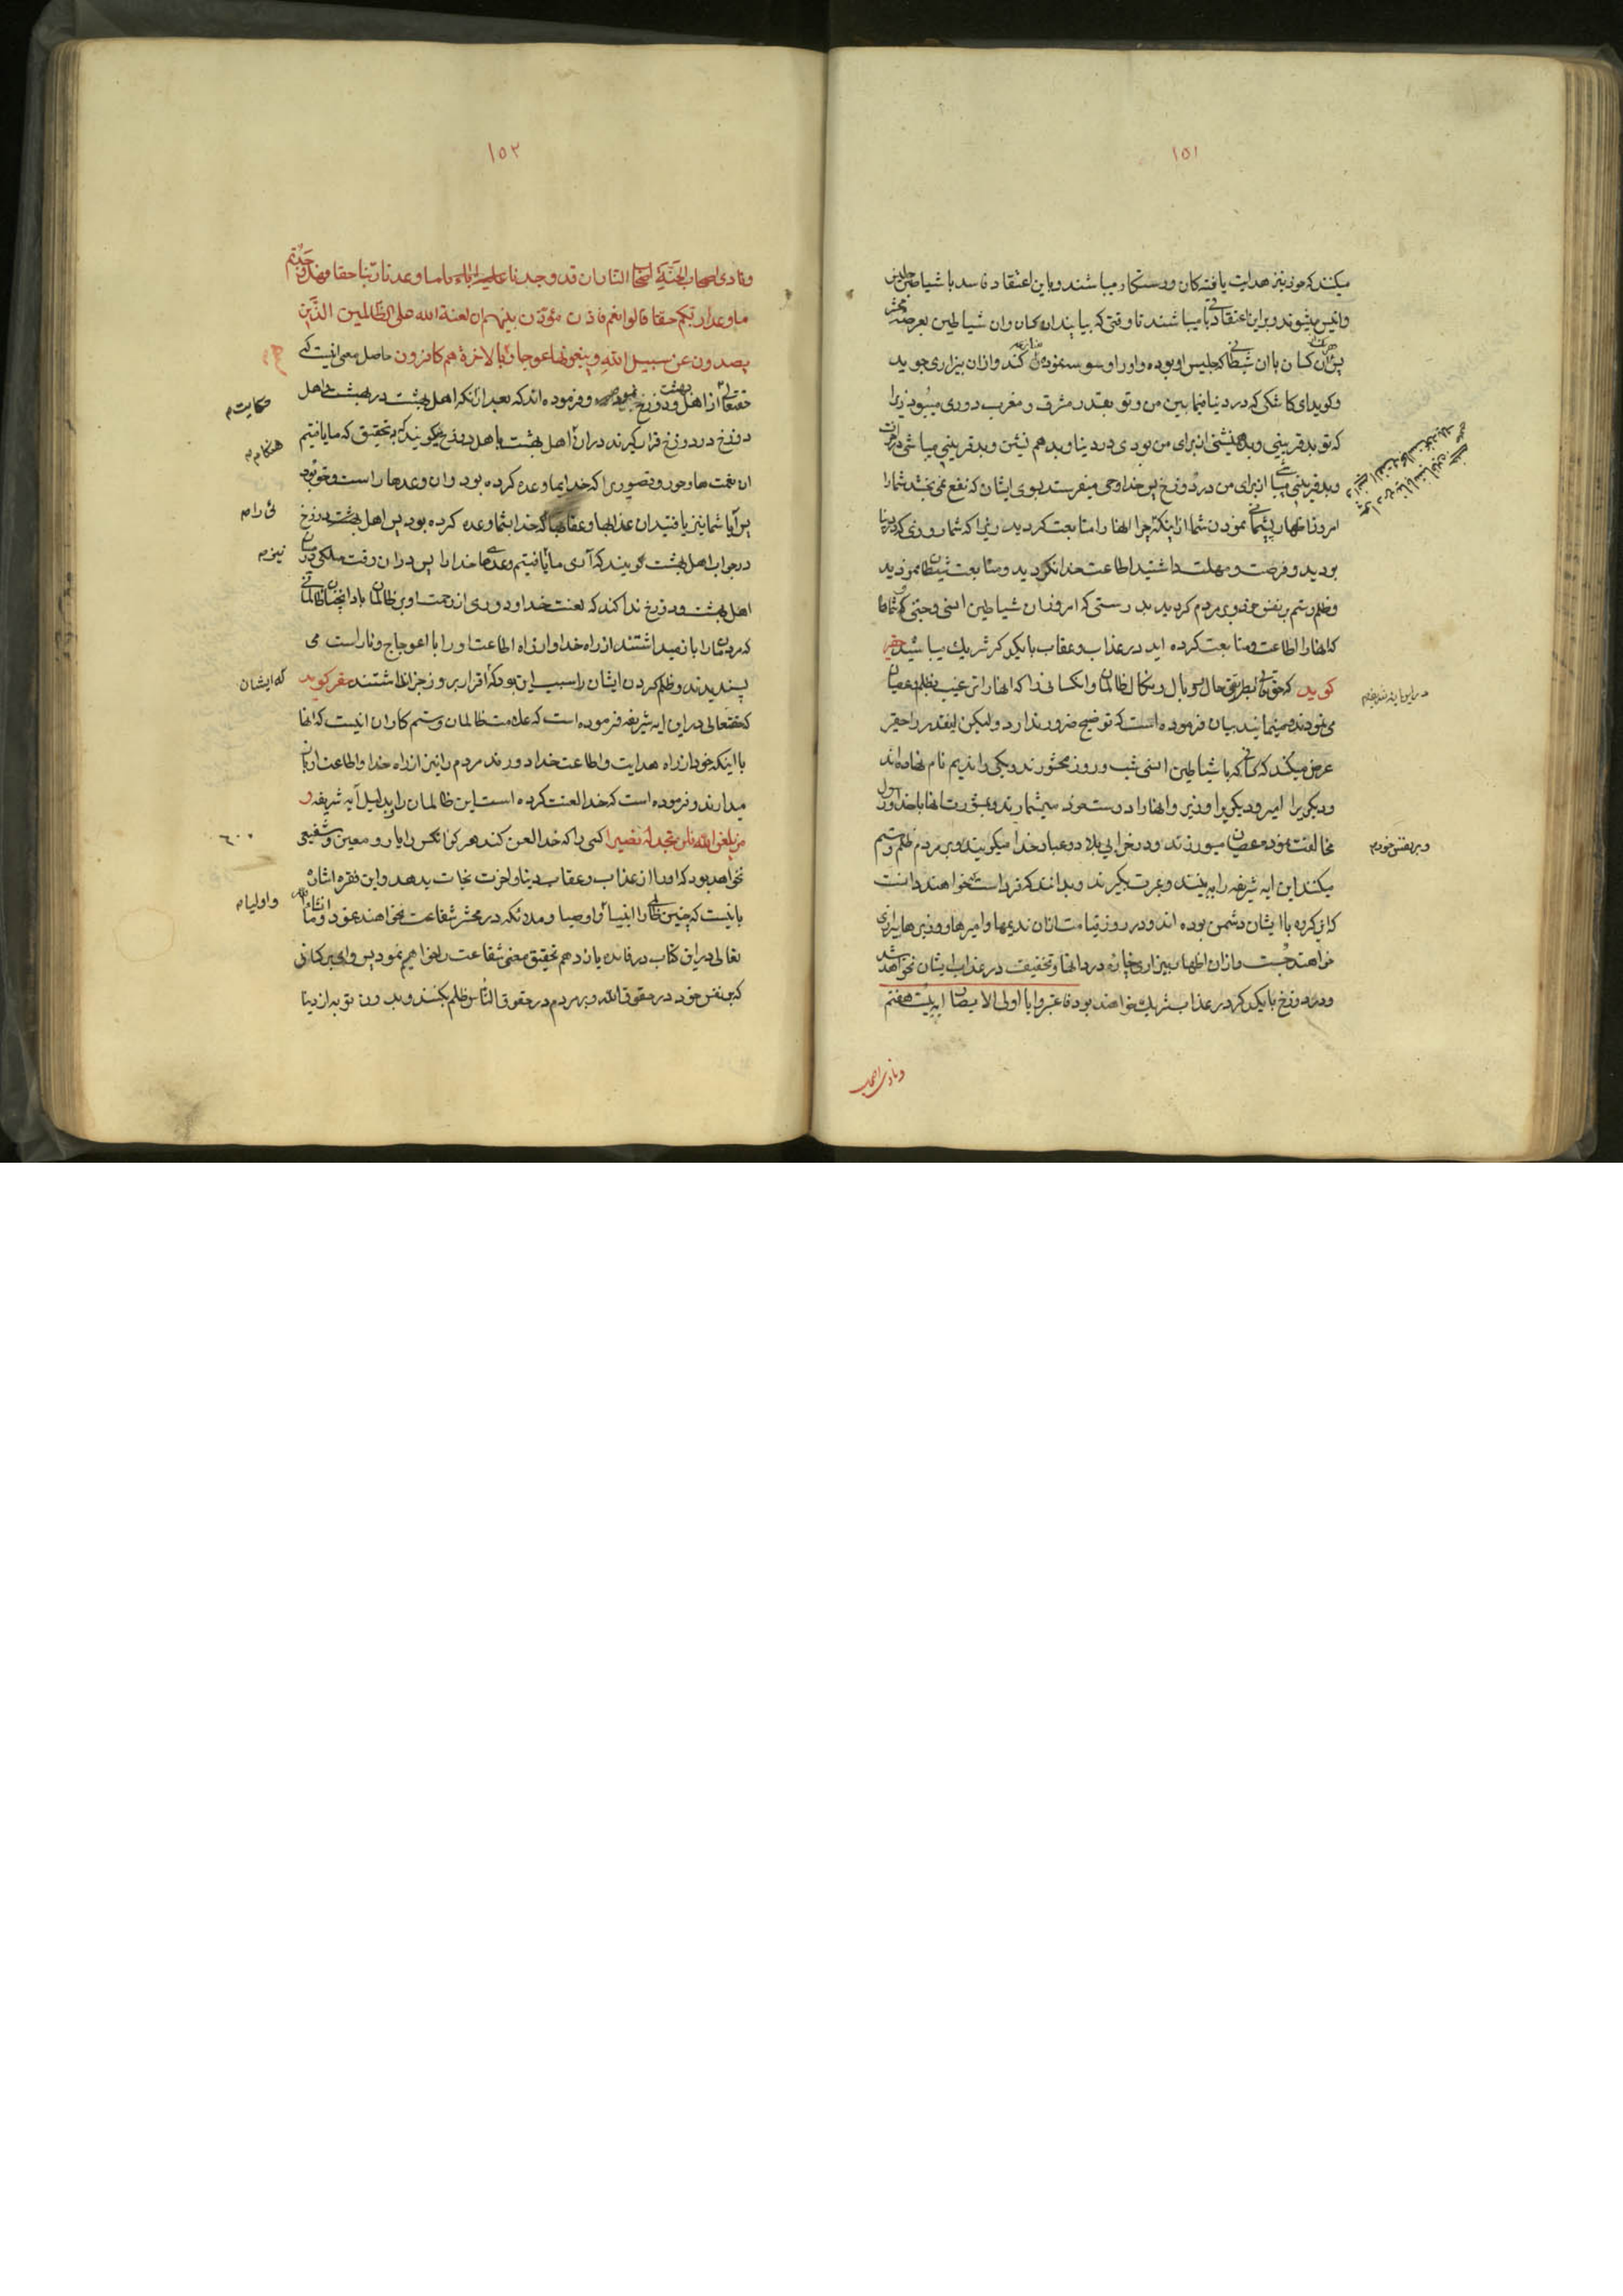 ١٥١
میکنند که خود نیز هدایت یافته کان و رستکار میباشند و باین اعتقاد فاسد با شیاطین جلیس
و انیس میشوند و براین اعتقاد میباشند تا وقتی که بیایند ان کسان و ان شیاطین بعرصه محشر
پس ان کسان با ان شیطانی که جلیس او بوده و او را وسوسه نموده کند و از ان بیزاری جوید
و کوید ای کاشکی که در دنیا فیمابین من و تو بقدر مشرق و مغرب دوری میبود زیرا
که تو بد قرینی و بد همنشینی از برای من بودی در دنیا و بد هم نشین و بد قرینی میباشی در اخرت
و بد قرینی از برای من در دوزخ پس خدا وحی میفرستد بسوی ایشان که نفع نمی بخشد شما را
امروز اظهار پشیمانی نمودن شما از اینکه چرا انها را متابعت کردید زیرا که شما روزی که در دنیا
بودید و فرصت و مهلت داشتید اطاعت خدا نکردید و متابعت شیطان نمودید
و ظلم و ستم بر نفس خود و بر مردم کردید بدرستی که امروز ان شیاطین انسی و جنی که شماها
که انها را اطاعت و متابعت کرده اید در عذاب و عقاب با یکدیکر شریک میباشید حقیر
کوید که حقتعالی حال و وبال و نکال ظالمان و انکسانی را که انها را ترغیب بظلم و عصیان
می نمودند و مینمایند بیان فرموده است که توضیح ضرور ندارد و لیکن اینقدر را حقیر
عرض میکند که کسانی که با شیاطین انسی شب و روز محشورند و یکی را ندیم نام نهاده اند
و دیکری را امیر و دیکری را وزیر و انها را دوست خود میشمارند و بمشورت انها با خدا و رسول
مخالفت نموده عصیان میورزند و در خرابی بلاد و عباد خدا میکوشند و بر مردم ظلم و ستم
میکنند این ایه شریفه را ببینند و عبرت بکیرند و بدانند که فردا است که خواهند دانست
که این کروه با ایشان دشمن بوده اند و در روز قیامت از ان ندیمها و امیرها و وزیرها بیزاری
خواهند جست و از ان اظهار بیزاری چاره درد انها و تخفیف در عذاب ایشان نخواهد شد
و در دوزخ با یکدیکر در عذاب شریک خواهند بود فاعتبروا یا اولی الابصار ایه بیست هفتم
و بر نفس خود م
و نادی اصحاب
١٥٢
و نادی اصحاب الجنة اصحاب النار ان قد وجدنا ما وعدنا ربنا حقا فهل وجدتم
ما وعد ربکم حقا قالوا نعم فاذن مؤذن بینهم ان لعنة الله علی الظالمین الذین
یصدون عن سبیل الله و یبغونها عوجا و هم بالاخرة هم کافرون حاصل معنی انیست که
حقتعالی از اهل بهشت و دوزخ و فرموده اند که بعد از انکه اهل بهشت در بهشت و اهل
دوزخ در دوزخ قرار کیرند در ان اهل بهشت باهل دوزخ میکویند که بتحقیق که ما یافتیم
ان نعمت ها و حور و قصوری را که خدا بما وعده کرده بود و ان وعدها راست و حق بود
پس آیا شما نیز یافتید ان عذابها و عقابها که خدا بشما وعده کرده بود پس اهل دوزخ
در جواب اهل بهشت کویند که آری ما یافتیم وعدهای خدا را پس در ان وقت ملکی در میان
اهل بهشت و دوزخ ندا کند که لعنت خدا و دوری از رحمت او بر ظالمان باد انچنان ظالمانی
که مردمان را باز میداشتند از راه خدا و از راه اطاعت او و راه با اعوجاج و ناراست می
پسندیدند و ظلم کردن ایشان را سبب این بود که اقرار بروز جزا نداشتند حقیر کوید
که حقتعالی در این ایه شریفه فرموده است که علامت ظالمان و ستم کاران انیست که انها
با اینکه خود از راه هدایت و اطاعت خدا دورند مردم را نیز از راه خدا و اطاعت او باز
میدارند و فرموده است که خدا لعنت کرده است این ظالمان را بدلیل آیه شریفه و
من یلعن الله فلن تجد له نصیرا کسی را که خدا لعن کند هرکز انکس را یار و معین و شفیعی
نخواهد بود که او را از عذاب و عقاب دنیا و اخرت نجات بدهد و این فقره اشاره
باینست که چنین ظالمی را انبیاء و اوصیا و ملائکه در محشر شفاعت نخواهند نمود و انشاء الله
تعالی در این کتاب در فائده یازدهم تحقیق معنی شفاعت را خواهیم نمود پس وای بر کسانی
که بر نفس خود در حقوق الله و بر مردم در حقوق الناس ظلم بکنند و بدون توبه از دنیا
حکایت م
هنکام م
ئی را م
نیز م
که ایشان
٦٠٠
و اولیا م